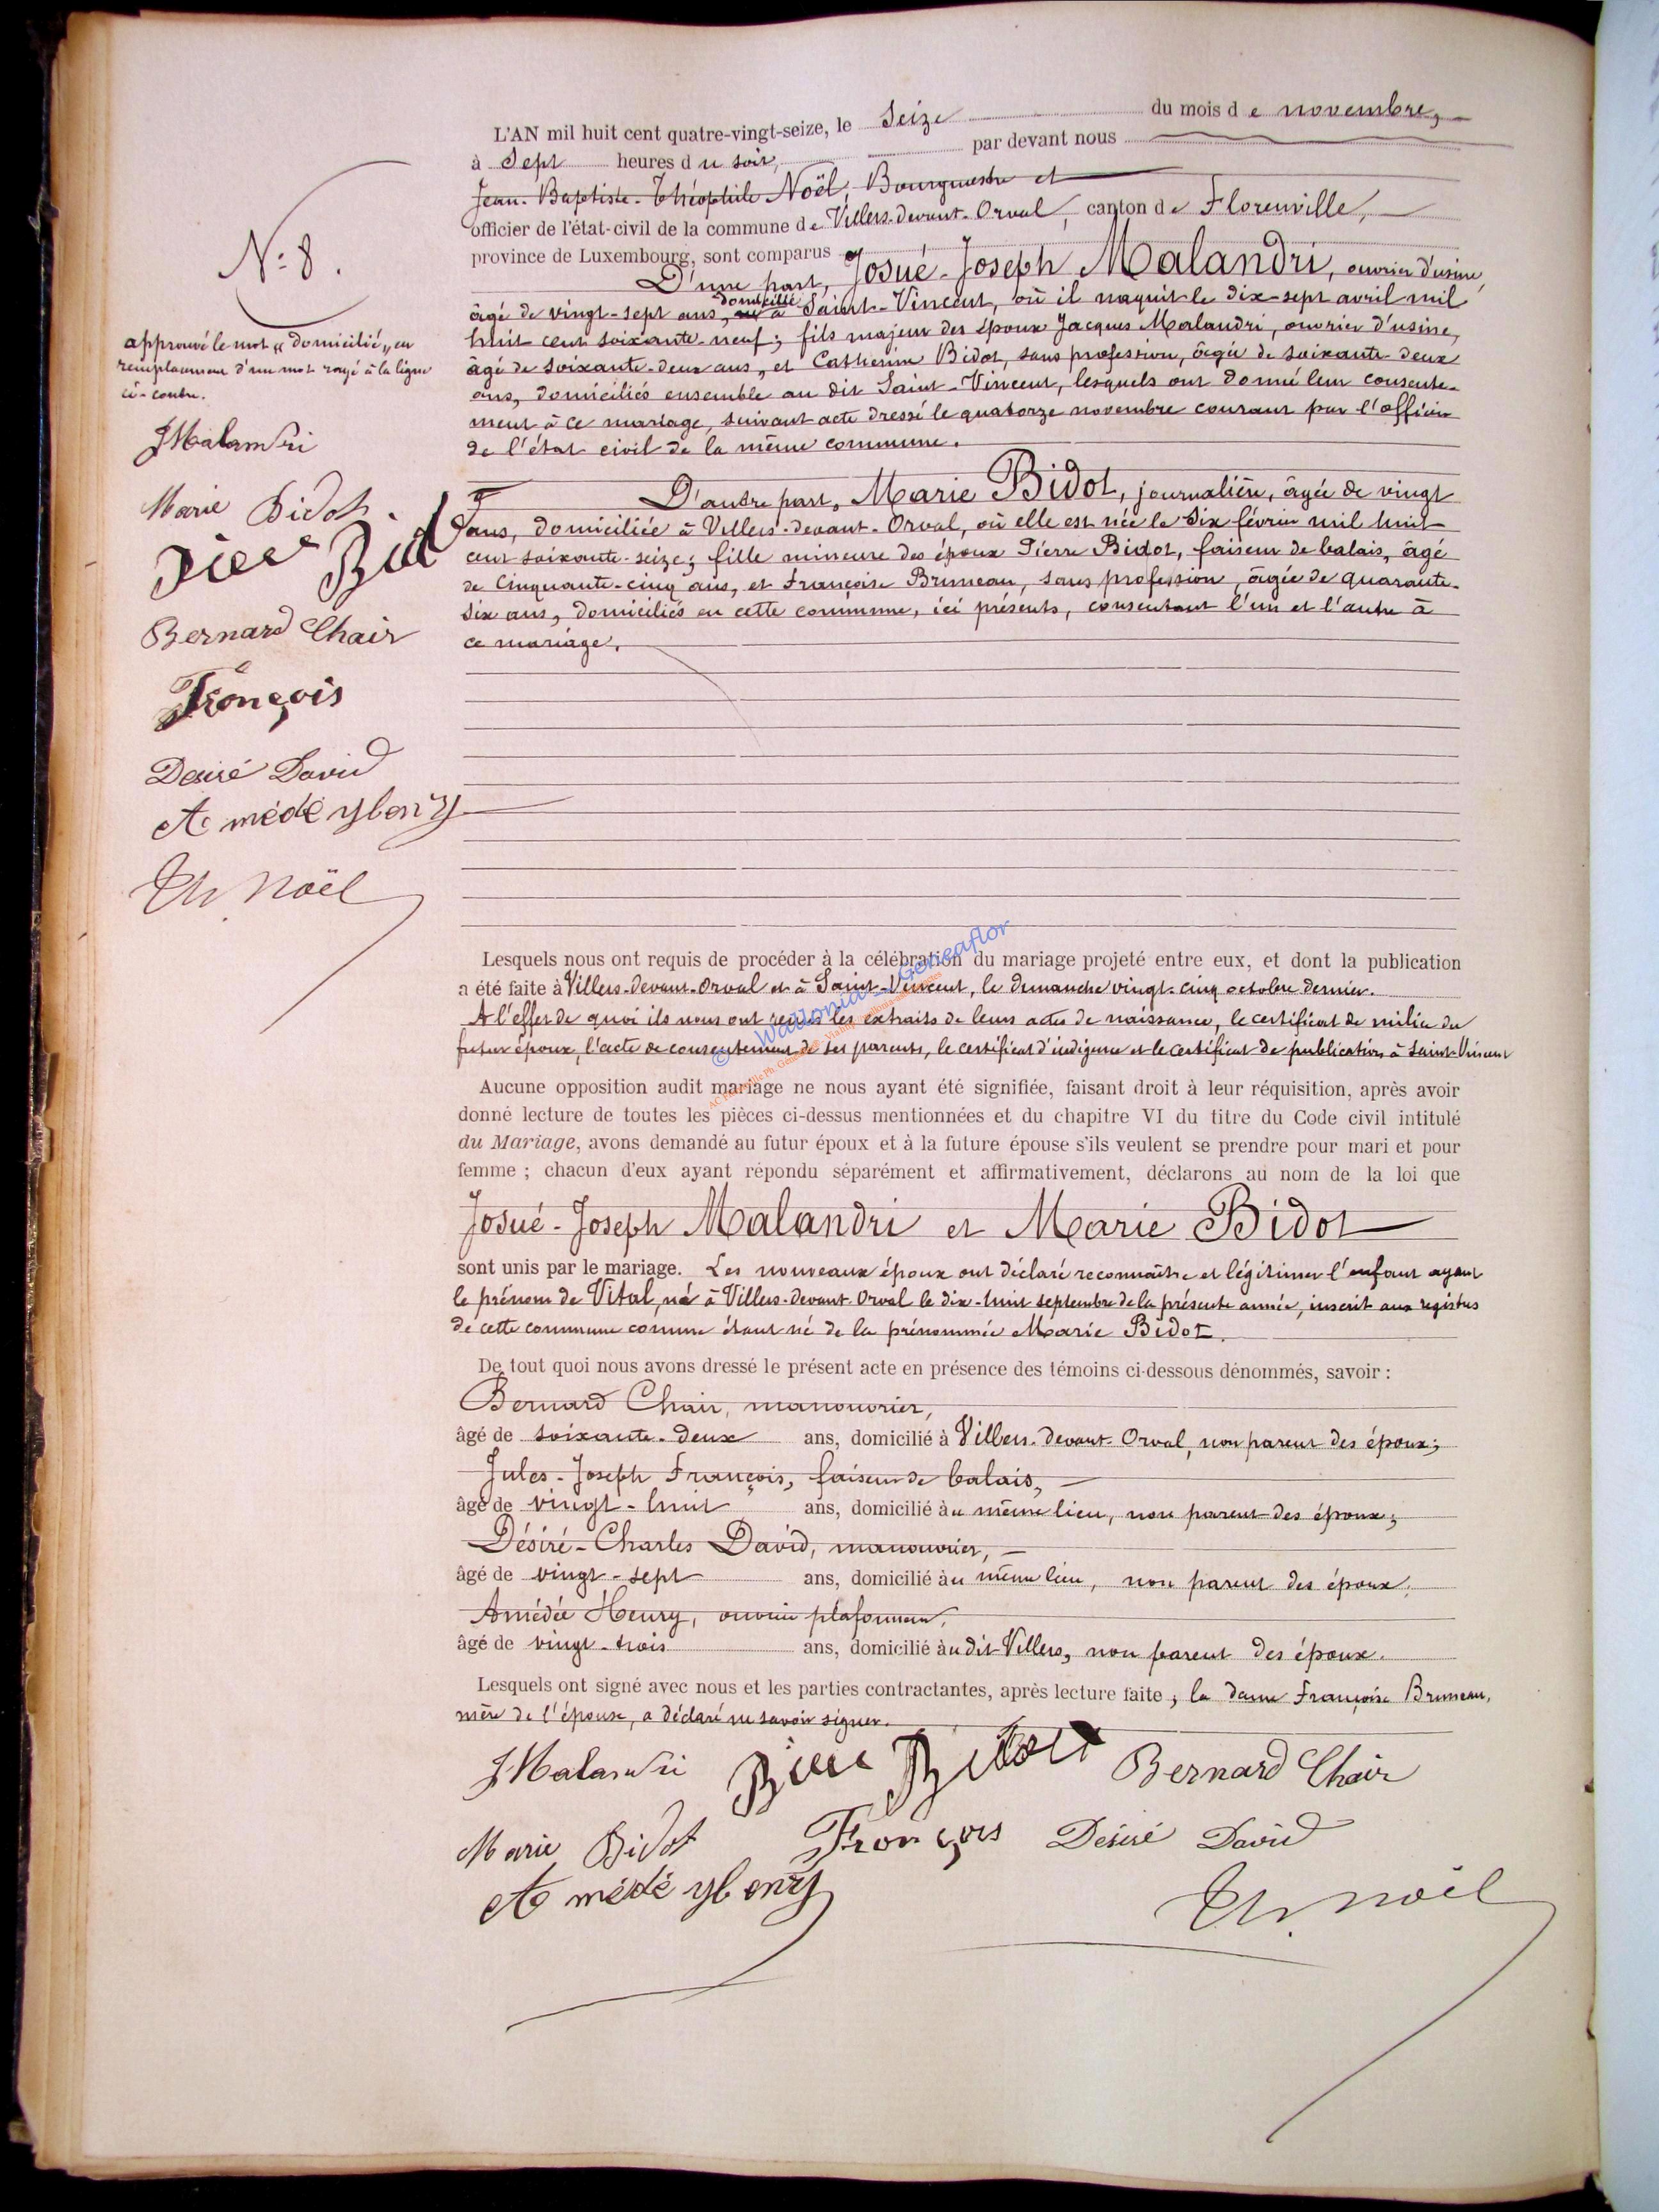 L'AN mil huit cent quatre-vingt-seize, le Seize du mois de novembre,
à Sept heures du soir, par devant nous
Jean-Baptiste-Théophile Noël, Bourgmestre et
officier de l'état-civil de la commune de Villers-devant-Orval, canton de Florenville,
province de Luxembourg, sont comparus
D'une part, Josué-Joseph Malandri, ouvrier d'usine,
domicilié
âgé de vingt-sept ans, à Saint-Vincent, où il naquit le dix-sept avril mil
huit cent soixante-neuf; fils majeur des époux Jacques Malandri, ouvrier d'usine,
âgé de soixante-deux ans, et Catherine Bidot, sans profession, âgée de soixante-deux
ans, domiciliés ensemble au dit Saint-Vincent, lesquels ont donné leur consente-
ment à ce mariage, suivant acte dressé le quatorze novembre courant par l'officier
de l'état civil de la même commune.
D'autre part, Marie Bidot, journalière, âgée de vingt
ans, domiciliée à Villers-devant-Orval, où elle est née le six février mil huit
cent soixante-seize; fille mineure des époux Pierre Bidot, faiseur de balais, âgé
de cinquante-cinq ans, et Françoise Bruneau, sans profession, âgée de quarante-
six ans, domiciliés en cette commune, ici présents, consentant l'un et l'autre à
ce mariage.
N° 8.
approuvé le mot "domicilié" en
remplacement d'un mot rayé à la ligne
ci-contre.
J Malandri
Marie Bidot.
Bernard Chair
François
Desiré David
Amédé
Th. Noël
Lesquels nous ont requis de procéder à la célébration du mariage projeté entre eux, et dont la publication
a été faite à Villers-devant-Orval et à Saint-Vincent, le dimanche vingt-cinq octobre dernier.
A l'effet de quoi ils nous ont remis les extraits de leurs actes de naissance, le certificat de milice du
futur époux, l'acte de consentement de ses parents, le certificat d'indigence et le certificat de publication à Saint-Vincent
Aucune opposition audit mariage ne nous ayant été signifiée, faisant droit à leur réquisition, après avoir
donné lecture de toutes les pièces ci-dessus mentionnées et du chapitre VI du titre du Code civil intitulé
du Mariage, avons demandé au futur époux et à la future épouse s'ils veulent se prendre pour mari et pour
femme ; chacun d'eux ayant répondu séparément et affirmativement, déclarons au nom de la loi que
Josué-Joseph Malandri et Marie Bidot
sont unis par le mariage. Les nouveaux époux ont déclaré reconnaître et légitimer l'enfant ayant
le prénom de Vital, né à Villers-devant-Orval le dix-huit septembre de la présente année, inscrit aux registres
de cette commune comme étant né de la prénommée Marie Bidot.
De tout quoi nous avons dressé le présent acte en présence des témoins ci-dessous dénommés, savoir :
Bernard Chair, manouvrier,
âgé de soixante-deux ans, domicilié à Villers-devant-Orval, non parent des époux;
Jules-Joseph François, faiseur de balais,
âgé de vingt-huit ans, domicilié au même lieu, non parent des époux;
Désiré-Charles David, manouvrier,
âgé de vingt-sept ans, domicilié au même lieu, non parent des époux;
Amédée Henry, ouvrier plafonneur,
âgé de vingt-trois ans, domicilié audit Villers, non parent des époux.
Lesquels ont signé avec nous et les parties contractantes, après lecture faite ; la dame Françoise Bruneau,
mère de l'épouse, a déclaré ne savoir signer.
J Malandri Bernard Chair
Marie Bidot François Désiré David
Amédé
Th. Noël
© Wallonia _ Geneaflor